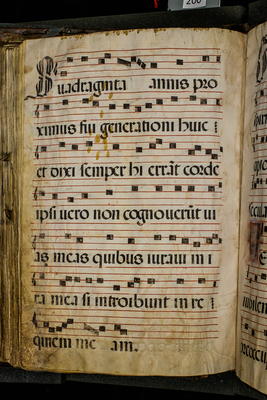 200
Quadraginta annis pro
ximus fui generationi huic
et dixi semper hi errāt corde
ipsi uero non cognouerūt ui
as meas quibus iuraui in i
ra mea si introibunt in re
quiem me am.